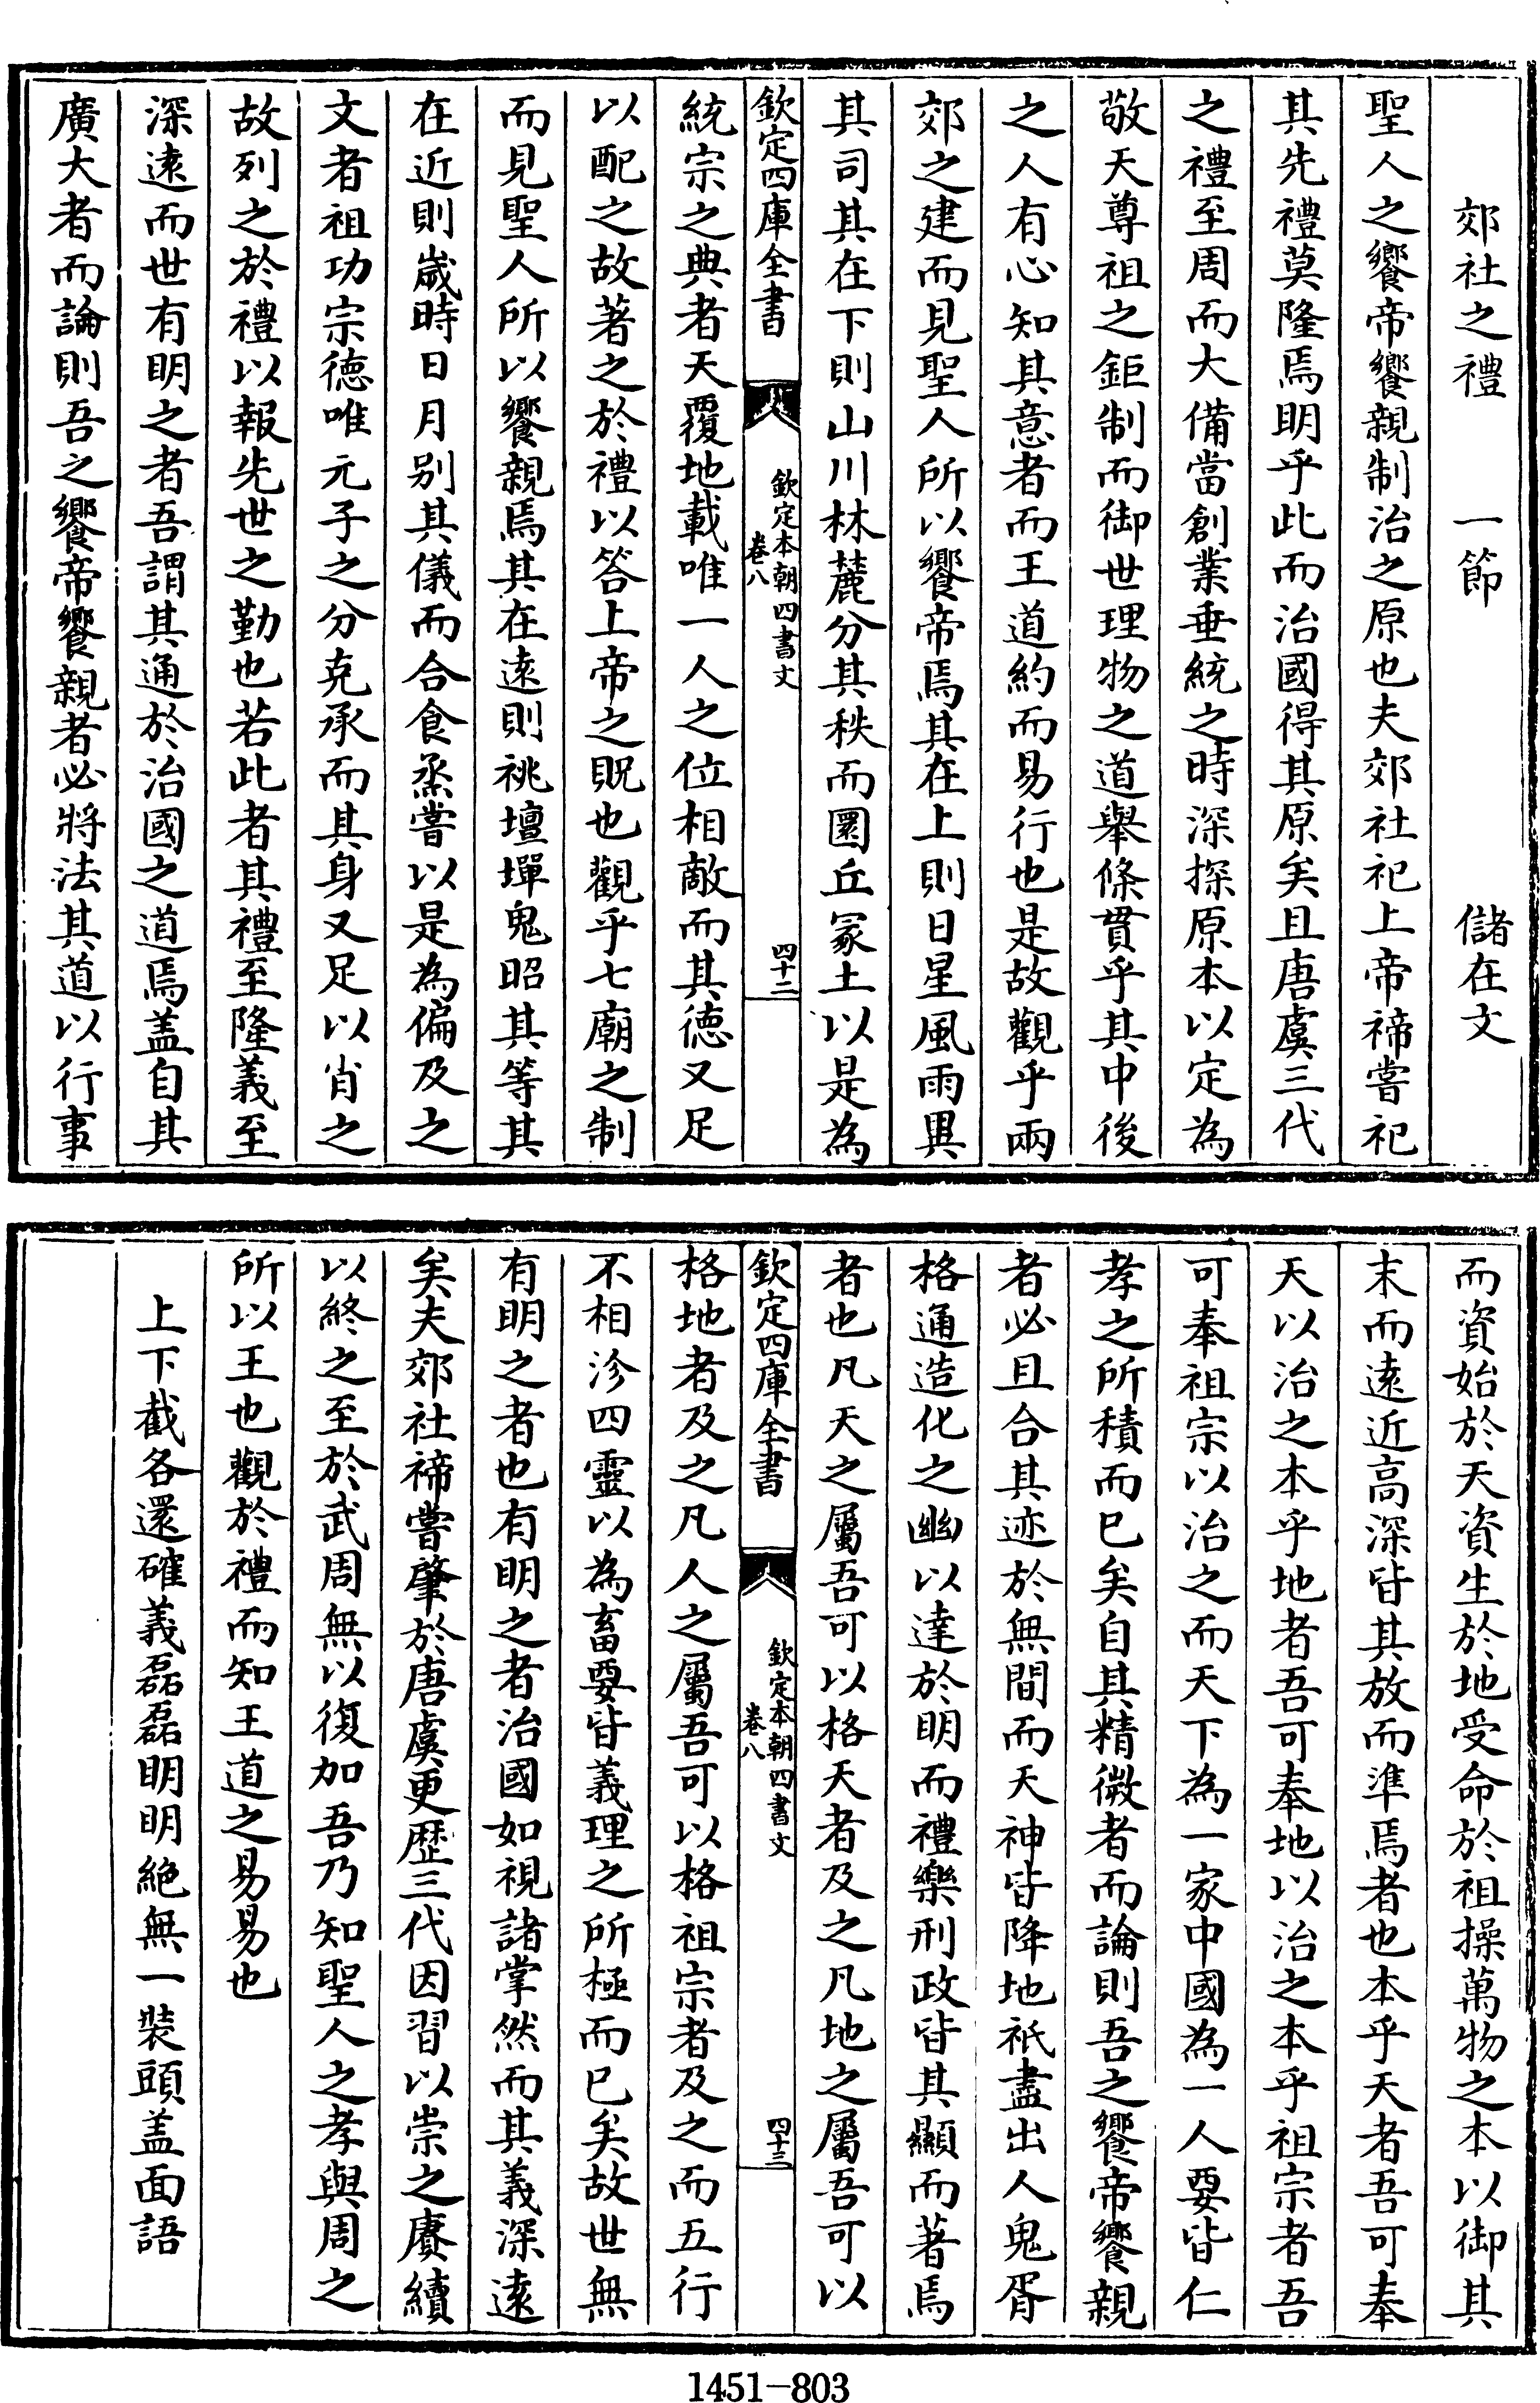 郊社之禮　一節　儲在文
聖人之饗帝饗親制治之原也夫郊社祀上帝禘嘗祀
其先禮莫隆焉明乎此而治國得其原矣且唐虞三代
之禮至周而大備當創業垂統之時深探原本以定為
敬天尊祖之鉅制而御世理物之道舉條貫乎其中後
之人有心知其意者而王道約而易行也是故觀乎兩
郊之建而見聖人所以饗帝焉其在上則日星風雨異
其司其在下則山川林麓分其秩而圜丘冢土以是為
欽定四庫全書　欽定本朝四書文　卷八　四十二
統宗之典者天覆地載唯一人之位相敵而其德又足
以配之故著之於禮以答上帝之貺也觀乎七廟之制
而見聖人所以饗親焉其在遠則祧壇墠鬼昭其等其
在近則歲時日月别其儀而合食烝嘗以是為偏及之
文者祖功宗德唯元子之分克承而其身又足以肖之
故列之於禮以報先世之勤也若此者其禮至隆義至
深遠而世有明之者吾謂其通於治國之道焉盖自其
廣大者而論則吾之饗帝饗親者必將法其道以行事
而資始於天資生於地受命於祖操萬物之本以御其
末而遠近高深皆其放而準焉者也本乎天者吾可奉
天以治之本乎地者吾可奉地以治之本乎祖宗者吾
可奉祖宗以治之而天下為一家中國為一人要皆仁
孝之所積而已矣自其精微者而論則吾之饗帝饗親
者必且合其迹於無間而天神皆降地祇盡出人鬼胥
格通造化之幽以達於明而禮樂刑政皆其顯而著焉
者也凡天之屬吾可以格天者及之凡地之屬吾可以
欽定四庫全書　欽定本朝四書文　卷八　四十三
格地者及之凡人之屬吾可以格祖宗者及之而五行
不相沴四靈以為畜要皆義理之所極而已矣故世無
有明之者也有明之者治國如視諸掌然而其義深遠
矣夫郊社禘嘗肇於唐虞更歷三代因習以崇之賡續
以終之至於武周無以復加吾乃知聖人之孝與周之
所以王也觀於禮而知王道之易易也
上下截各還確義磊磊明明絶無一裝頭盖面語
1451-803